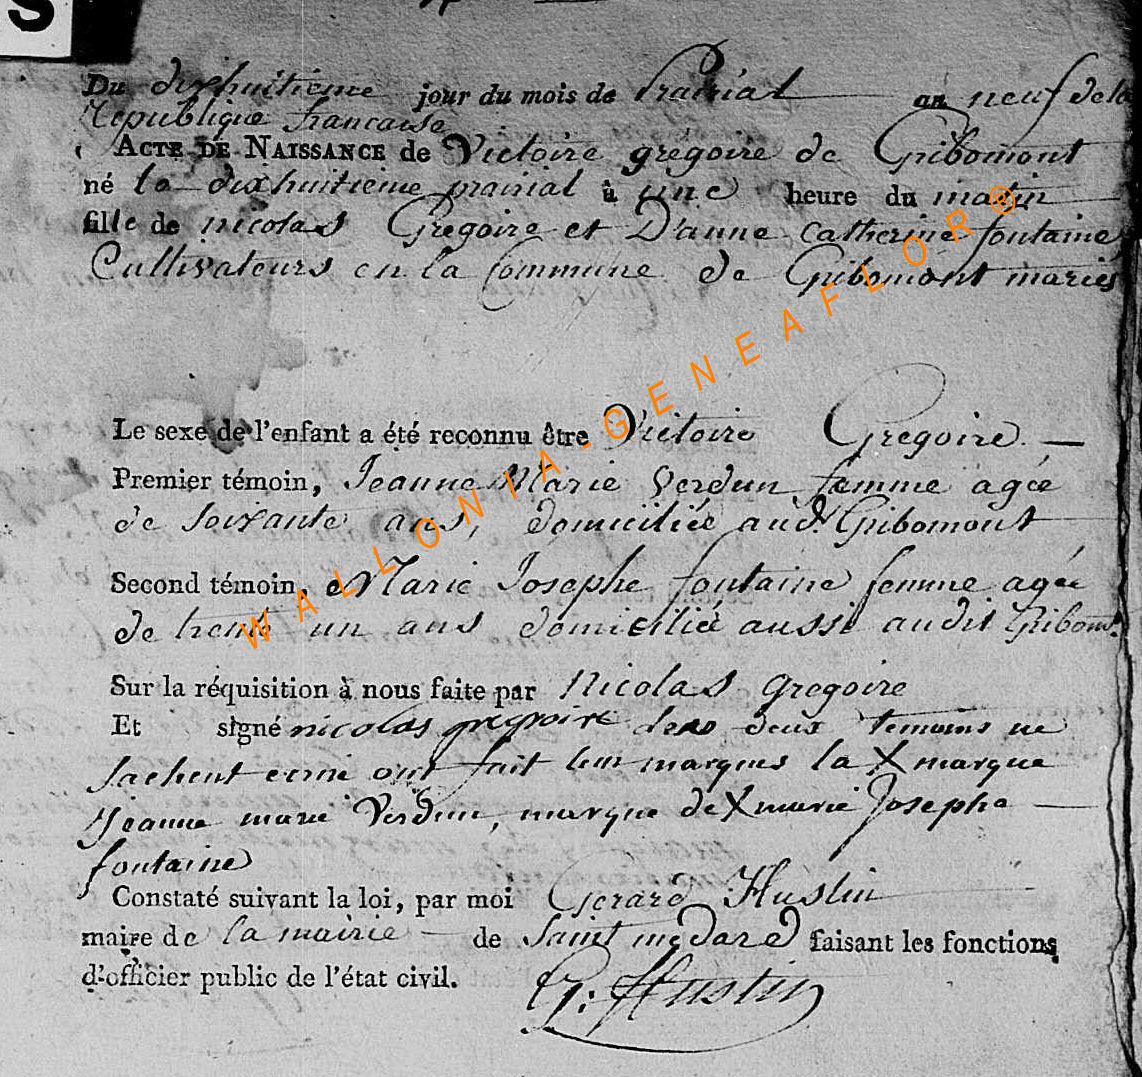 S
Du dixhuitieme jour du mois de Prairial an neuf de la
Republique francaise
ACTE DE NAISSANCE de Victoire gregoire de Gribomont
né le dixhuitieme prairial à une heure du matin
fille de nicolas Gregoire et D'anne catherine fontaine
Cultivateurs en la Commune de Gribomont mariés
Le sexe de l'enfant a été reconnu être Victoire Gregoire.
Premier témoin, Jeanne Marie Verdun femme agée
de soixante ans, domiciliée aud. Gribomont
Second témoin, Marie Josephe fontaine femme agée
de trente un ans domiciliée aussi audit Gribom.
Sur la réquisition à nous faite par Nicolas gregoire
Et signé nicolas gregoire deux temoins ne
sachent ecrire ont fait leur marques la X marque
Jeanne marie Verdun, marque de X marie Josephe
fontaine
Constaté suivant la loi, par moi Gerard Hustin
maire de la mairie de Saint medard faisant les fonctions
d'officier public de l'état civil.
G: Hustin
WALLONIA-GENEAFLOR®